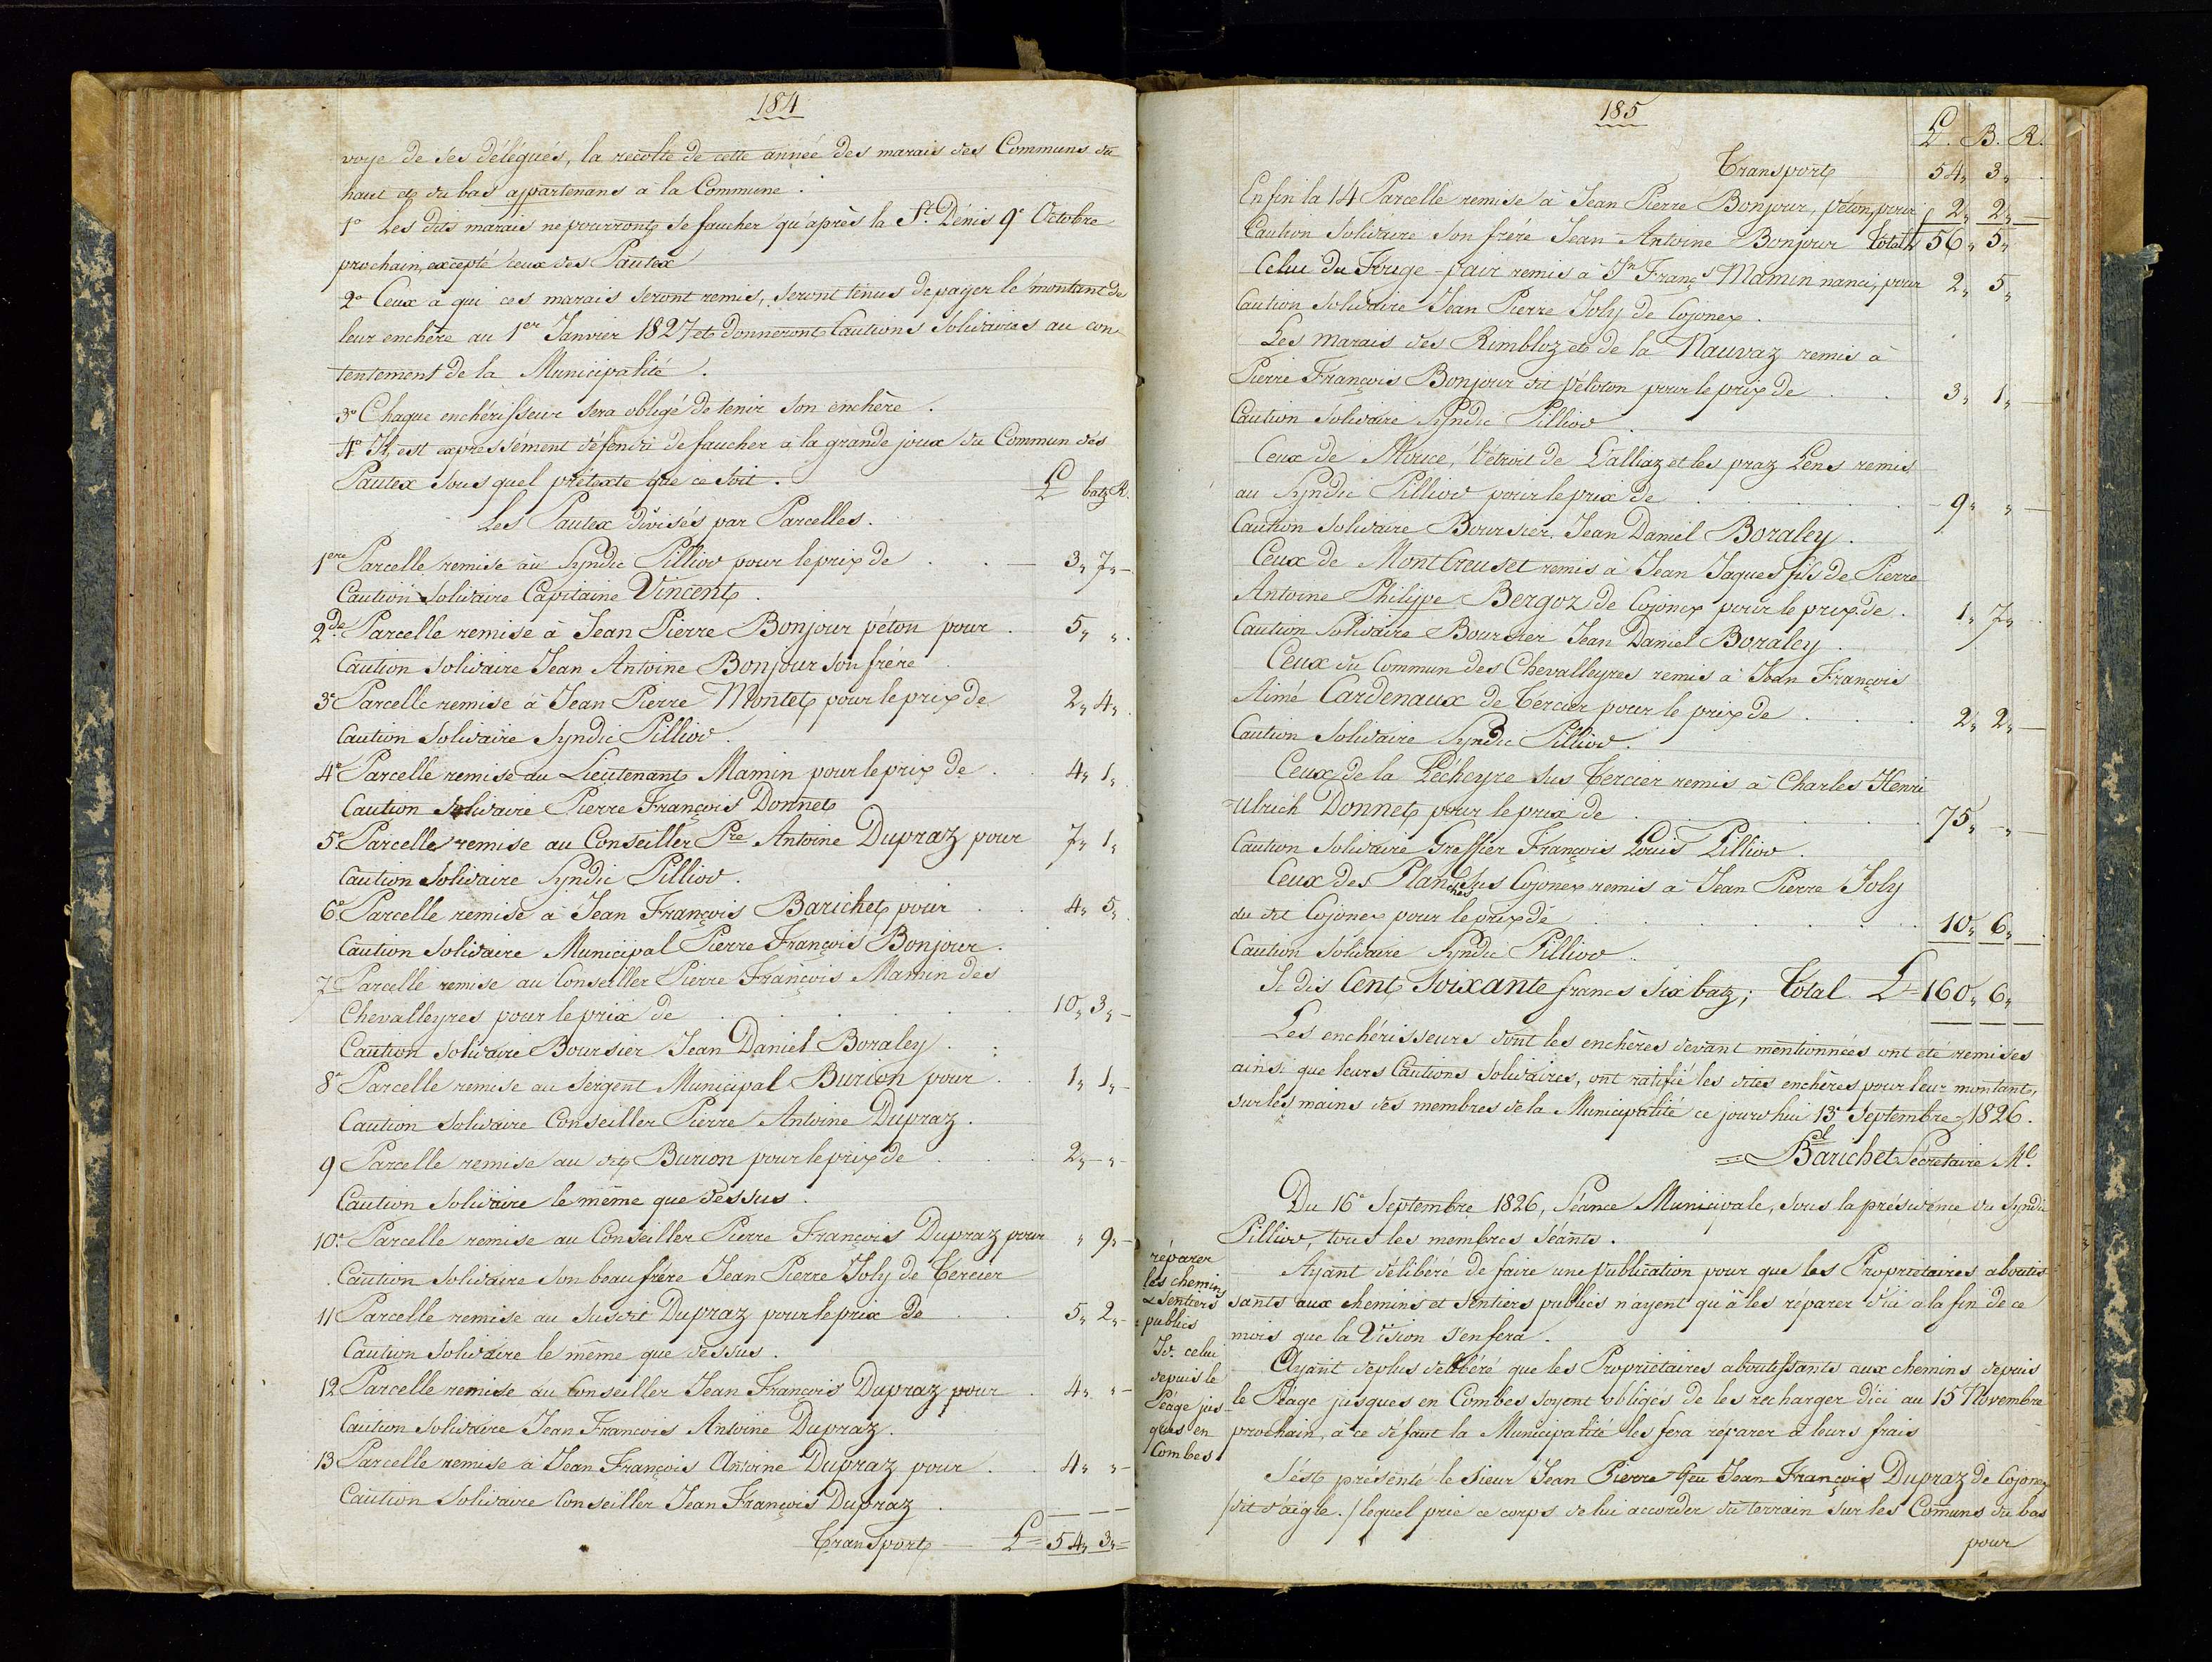 184
voye de ses délégués, la recolte de cette année des marais des Communs du
haut et du bas appartenans à la Commune.
1° Les dits marais ne pourront se faucher qu'après la St. Dénis 9e Octobre
prochain, excepté ceux des Pautex
2° Ceux à qui ces marais seront remis, seront tenus de payer le montant de
leur enchère au 1er Janvier 1827 et donneront Cautions solidaires au con-
tentement de la Municipalité.
3° Chaque enchérisseur sera obligé de tenir son enchère.
4° Il est expressément défendu de faucher a la grande joux du Commun des
Pautex sous quel prétexte que ce soit. L batz R.
Les Pautex divisés par Parcelles.
1ere Parcelle remise au Syndic Pilliod pour le prix de . . — 3„ 7„ —
Caution solidaire Capitaine Vincent.
2de Parcelle remise à Jean Pierre Bonjour péton pour . 5„ „
Caution solidaire Jean Antoine Bonjour son frére
3e Parcelle remise à Jean Pierre Montet pour le prix de 2„ 4„
Caution solidaire Syndic Pilliod.
4e Parcelle remise au Lieutenant Mamin pour le prix de . . 4„ 1„
Caution solidaire Pierre François Donnet
5e Parcelle remise au Conseiller Pre Antoine Dupraz pour 7„ 1„
Caution solidaire Syndic Pilliod.
6e Parcelle remise à Jean François Barichet pour . . 4„ 5„
Caution solidaire Municipal Pierre François Bonjour.
7e Parcelle remise au Conseiller Pierre François Mamin des
Chevalleyres pour le prix de . . . . 10„ 3„ —
Caution solidaire Boursier Jean Daniel Boraley.
8e Parcelle remise au Sergent Municipal Burion pour . . 1„ 1„ —
Caution solidaire Conseiller Pierre Antoine Dupraz.
9 Parcelle remise au dit Burion pour le prix de . . . 2„ — „ —
Caution solidaire le même que dessus.
10e Parcelle remise au Conseiller Pierre François Dupraz pour „ 9„ —
Caution solidaire son beau frére Jean Pierre Joly de Tercier
11 Parcelle remise au susdit Dupraz pour le prix de . . 5„ 2„ —
Caution solidaire le même que dessus.
12 Parcelle remise au Conseiller Jean François Dupraz pour . 4„ „ —
Caution solidaire Jean François Antoine Dupraz.
13 Parcelle remise à Jean François Antoine Dupraz pour . . 4„ „ —
Caution solidaire Conseiller Jean François Dupraz.
Transport — L = 54„ 3„ =
185
L. B. R.
Transport 54„ 3„
Enfin la 14 Parcelle remise à Jean Pierre Bonjour, péton, pour 2„ 2„ —
Caution solidaire son frére Jean Antoine Bonjour Total L 56„ 5„
Celui du remis à Jn Franç.s Mamin nanci, pour 2„ 5„
Caution solidaire Jean Pierre Joly de Cojonex.
Les marais des Rimbloz et de la Nauvaz remis à
Pierre François Bonjour dit péloton pour le prix de . . 3„ 1„ —
Caution solidaire Syndic Pilliod.
Ceux de Mouce, l'étroit de L'alliaz et les praz Lens remis
au Syndic Pilliod pour le prix de . . . . 9„ „ —
Caution solidaire Boursier Jean Daniel Boraley.
Ceux de Montbreuset remis à Jean Jaques fils de Pierre
Antoine Philippe Bergoz de Cojonex pour le prix de . 1„ 7„
Caution solidaire Boursier Jean Daniel Boraley.
Ceux du Commun des Chevalleyres remis à Jean François
Aimé Cardenaux de Tercier pour le prix de . . . 2„ 2„ —
Caution solidaire Syndic Pilliod.
Ceux de la Lécheyre sus Tercier remis à Charles Henri
Ulrich Donnet pour le prix de . . . . 75„ — „ —
Caution solidaire Greffier François Louis Pilliod.
Ceux des Planches sus Cojonex remis à Jean Pierre Joly
du dit Cojonex pour le prix de . . . . 10„ 6„
Caution solidaire Syndic Pilliod.
Je dis Cent Soixante francs six batz; Total L = 160„ 6„
Les enchérisseurs dont les enchères devant mentionnées ont été remises
ainsi que leurs Cautions solidaires, ont ratifié les dites enchères pour leur montant,
sur les mains des membres de la Municipalité ce jourd'hui 13e Septembre 1826.
= Barichet Secretaire Ml.
Du 16e Septembre 1826, Séance Municipale, sous la présidence du Syndic
Pilliod, tous les membres séants.
réparer
les chemins
& sentiers
publics
Ayant délibéré de faire une publication pour que les Propriétaires aboutis-
sants aux chemins et sentiers publics n'ayent qu'à les réparer d'ici a la fin de ce
mois que la Vision s'en fera.
Id. celui
depuis le
Péage jus-
ques en
Combes
Ayant deplus délibéré que les Propriétaires aboutissants aux chemins depuis
le Péage jusques en Combes soyent obligés de les recharger d'ici au 15 Novembre
prochain, à ce défaut la Municipalité les fera réparer à leurs frais
S'est présenté le Sieur Jean Pierre feu Jean François Dupraz de Cojonex
/dit d'aigle./ lequel prie ce corps de lui accorder du terrain sur les Comuns du bas
pour